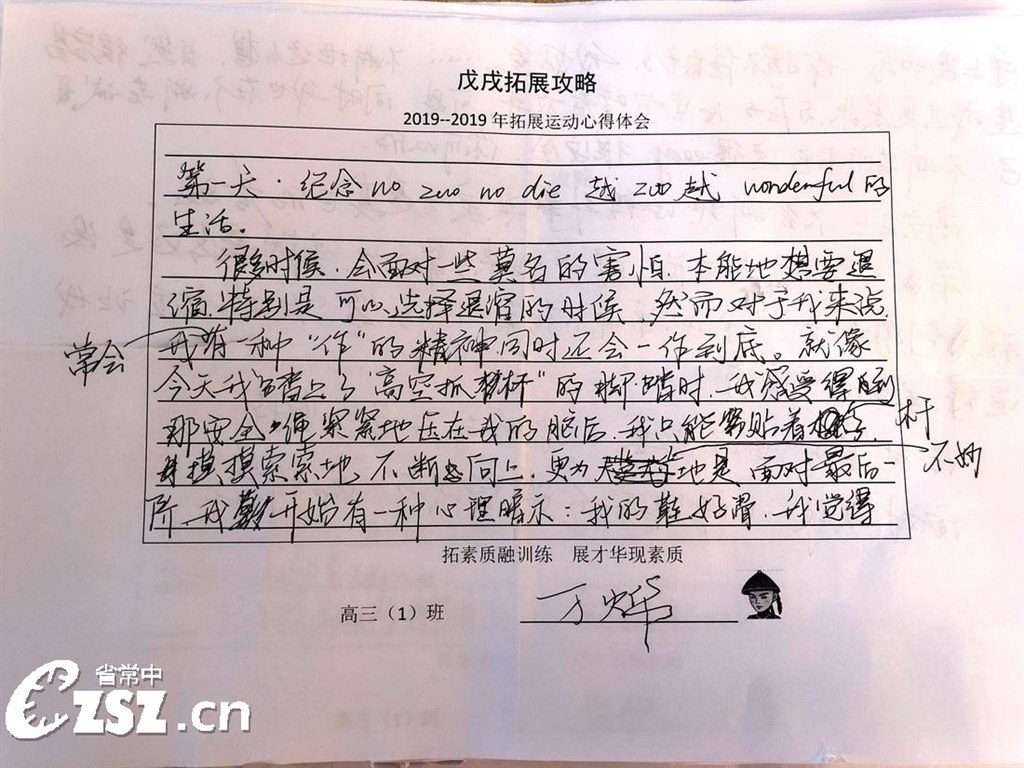 戊戌拓展攻略
2019--2019 年拓展运动心得体会
第一天:纪念no zuo no die 越zuo越 wonderful的
生活。
很多时候,会面对一些莫名的害怕,本能地想要退
缩,特别是可以选择退缩的时候,然而对于我来说,
常会
我有一种“作”的精神同时还会一作到底。就像
今天我踏上了“高空抓杆”的脚踏时,我感受得到
那安全绳紧紧地压在我的脑后,我只能紧贴着
杆
摸摸索索地,不断向上,更为
不妙
地是面对最后一
阶,我开始有一种心理暗示:我的鞋好滑,我觉得
拓素质融训练 展才华现素质
高三(1)班
丁烨
省常中
CZSZ.cn